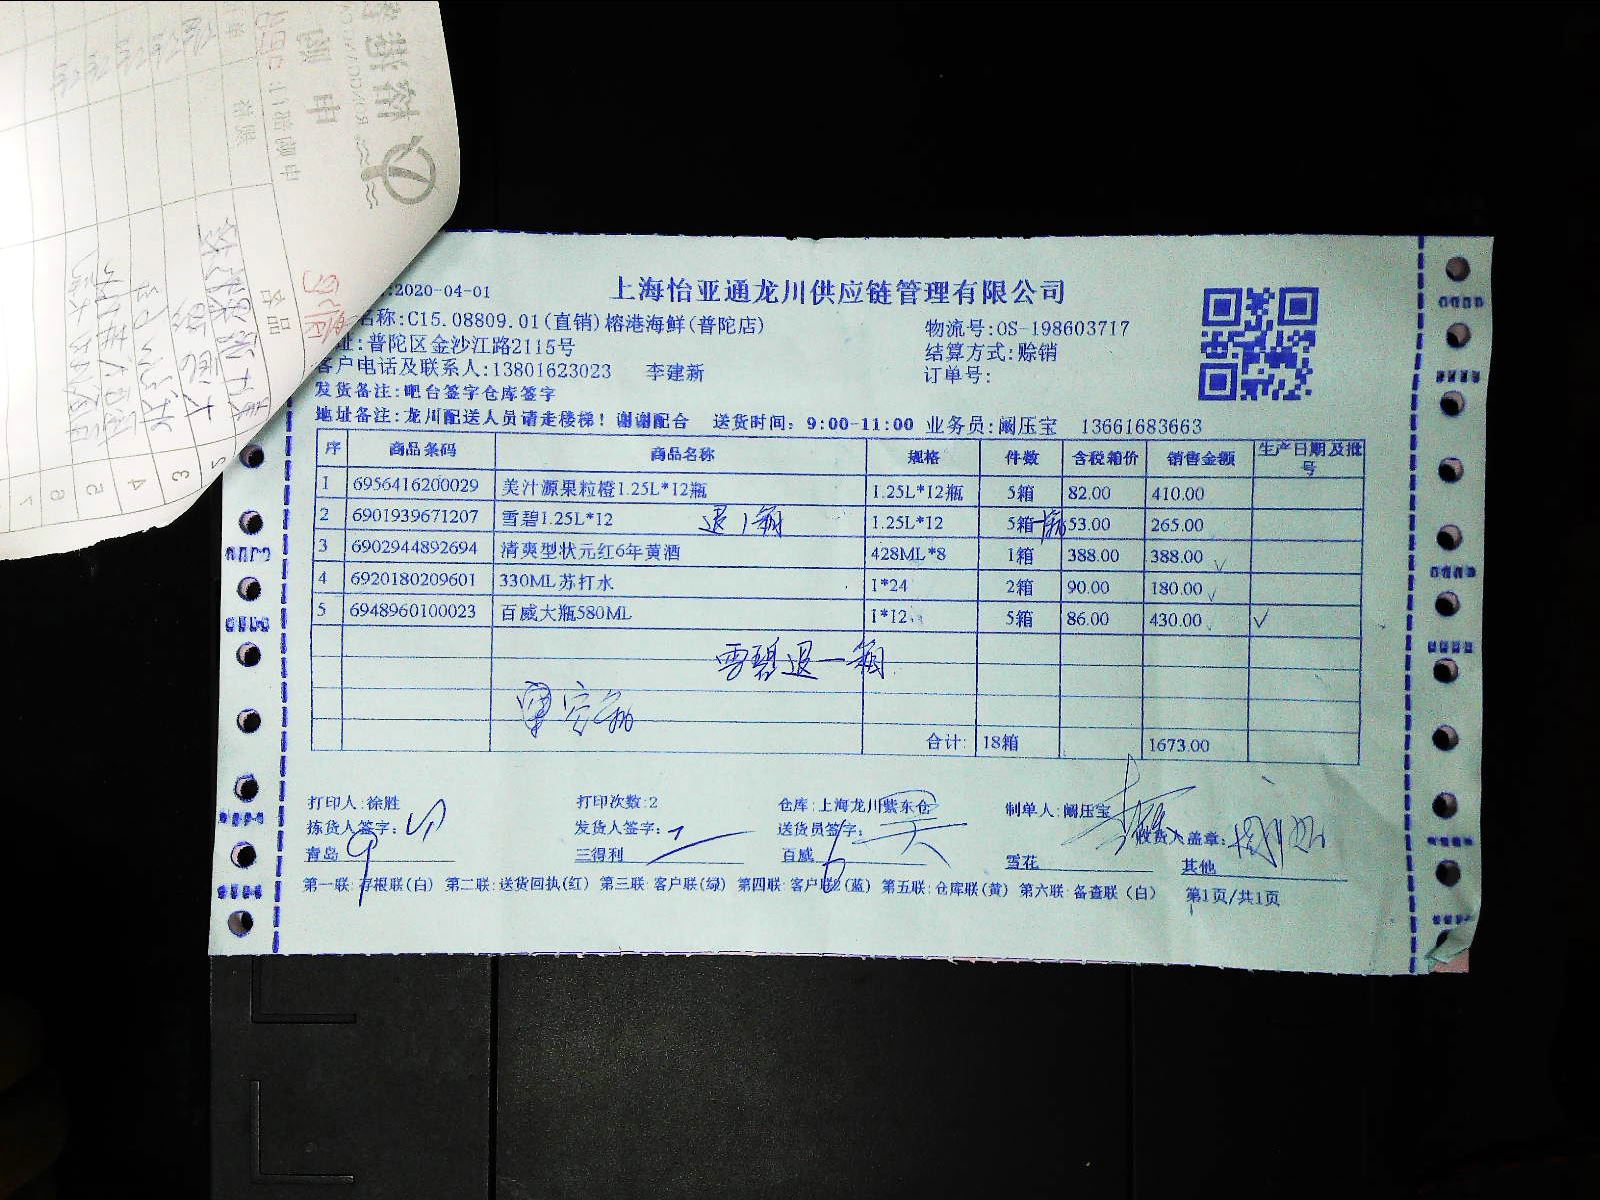 :2020-04-01
上海怡亚通龙川供应链管理有限公司
名称:C15.08809.01(直销)榕港海鲜(普陀店)
物流号:OS-198603717
址:普陀区金沙江路2115号
结算方式:赊销
客户电话及联系人:13801623023 李建新
订单号:
发货备注:吧台签字仓库签字
地址备注:龙川配送人员请走楼梯！谢谢配合 送货时间：9:00-11:00 业务员:阚压宝 13661683663
序 商品条码 商品名称 规格 件数 含税箱价 销售金额 生产日期及批号
1 6956416200029 美汁源果粒橙1.25L*12瓶 1.25L*12瓶 5箱 82.00 410.00
2 6901939671207 雪碧1.25L*12 退1箱 1.25L*12 5箱 53.00 265.00
3 6902944892694 清爽型状元红6年黄酒 428ML*8 1箱 388.00 388.00
4 6920180209601 330ML苏打水 1*24 2箱 90.00 180.00
5 6948960100023 百威大瓶580ML 1*12 5箱 86.00 430.00 ✓
雪碧退一箱
合计: 18箱 1673.00
打印人:徐胜 打印次数:2 仓库:上海龙川紫东仓 制单人:阚压宝
拣货人签字: 发货人签字: 送货员签字: 收货人盖章:
青岛 三得利 百威 雪花 其他
第一联:存根联(白) 第二联:送货回执(红) 第三联:客户联(绿) 第四联:客户联2(蓝) 第五联:仓库联(黄) 第六联:备查联(白) 第1页/共1页